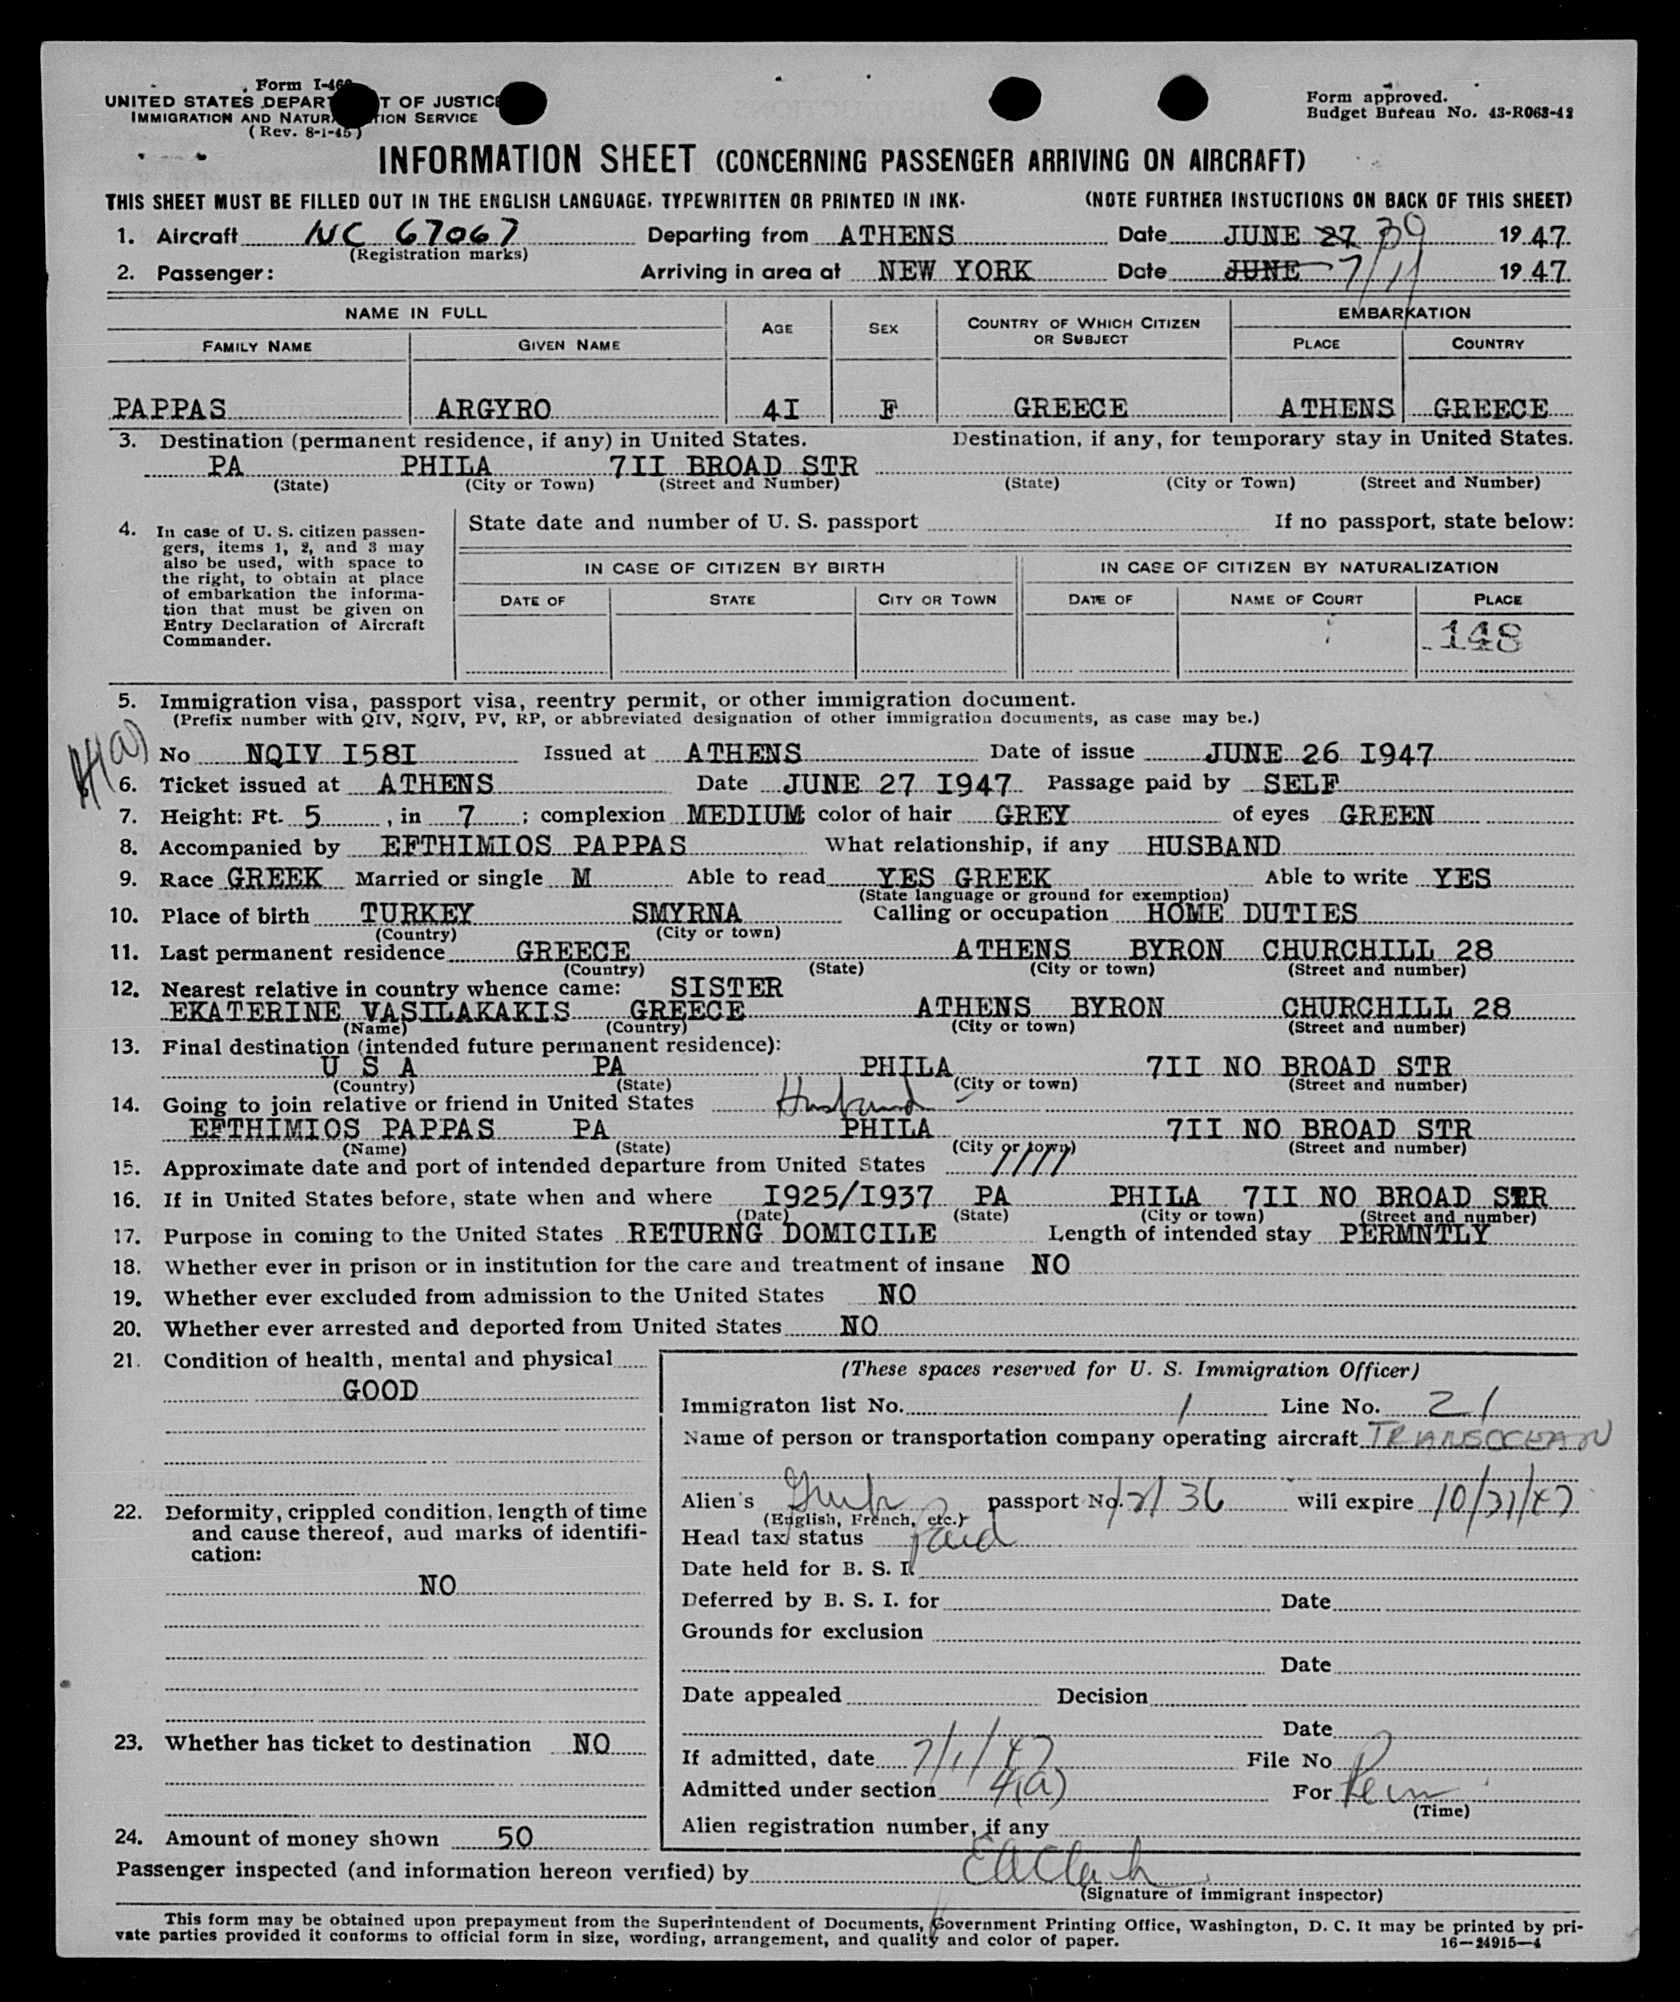 Form I-466
UNITED STATES DEPARTMENT OF JUSTICE
IMMIGRATION AND NATURALIZATION SERVICE
(Rev. 8-1-45)
Form approved.
Budget Bureau No. 43-R068-42
INFORMATION SHEET (CONCERNING PASSENGER ARRIVING ON AIRCRAFT)
THIS SHEET MUST BE FILLED OUT IN THE ENGLISH LANGUAGE, TYPEWRITTEN OR PRINTED IN INK. (NOTE FURTHER INSTUCTIONS ON BACK OF THIS SHEET)
1. Aircraft NC 67067 Departing from ATHENS Date JUNE 27 29 19 47
(Registration marks)
2. Passenger: Arriving in area at NEW YORK Date JUNE 7/1 19 47
NAME IN FULL AGE SEX COUNTRY OF WHICH CITIZEN OR SUBJECT EMBARKATION
FAMILY NAME GIVEN NAME PLACE COUNTRY
PAPPAS ARGYRO 4I F GREECE ATHENS GREECE
3. Destination (permanent residence, if any) in United States. Destination, if any, for temporary stay in United States.
PA PHILA 7II BROAD STR
(State) (City or Town) (Street and Number) (State) (City or Town) (Street and Number)
4. In case of U. S. citizen passengers, items 1, 2, and 3 may also be used, with space to the right, to obtain at place of embarkation the information that must be given on Entry Declaration of Aircraft Commander.
State date and number of U. S. passport If no passport, state below:
IN CASE OF CITIZEN BY BIRTH IN CASE OF CITIZEN BY NATURALIZATION
DATE OF STATE CITY OR TOWN DATE OF NAME OF COURT PLACE
148
5. Immigration visa, passport visa, reentry permit, or other immigration document.
(Prefix number with QIV, NQIV, PV, RP, or abbreviated designation of other immigration documents, as case may be.)
4(a)
No NQIV I58I Issued at ATHENS Date of issue JUNE 26 I947
6. Ticket issued at ATHENS Date JUNE 27 I947 Passage paid by SELF
7. Height: Ft. 5, in 7; complexion MEDIUM; color of hair GREY of eyes GREEN
8. Accompanied by EFTHIMIOS PAPPAS What relationship, if any HUSBAND
9. Race GREEK Married or single M Able to read YES GREEK Able to write YES
(State language or ground for exemption)
10. Place of birth TURKEY SMYRNA Calling or occupation HOME DUTIES
(Country) (City or town)
11. Last permanent residence GREECE ATHENS BYRON CHURCHILL 28
(Country) (State) (City or town) (Street and number)
12. Nearest relative in country whence came: SISTER
EKATERINE VASILAKAKIS GREECE ATHENS BYRON CHURCHILL 28
(Name) (Country) (City or town) (Street and number)
13. Final destination (intended future permanent residence):
U S A PA PHILA 7II NO BROAD STR
(Country) (State) (City or town) (Street and number)
14. Going to join relative or friend in United States Husband
EFTHIMIOS PAPPAS PA PHILA 7II NO BROAD STR
(Name) (State) (City or town) (Street and number)
15. Approximate date and port of intended departure from United States
16. If in United States before, state when and where I925/I937 PA PHILA 7II NO BROAD STR
(Date) (State) (City or town) (Street and number)
17. Purpose in coming to the United States RETURNG DOMICILE Length of intended stay PERMNTLY
18. Whether ever in prison or in institution for the care and treatment of insane NO
19. Whether ever excluded from admission to the United States NO
20. Whether ever arrested and deported from United States NO
21. Condition of health, mental and physical
GOOD
22. Deformity, crippled condition, length of time
and cause thereof, aud marks of identifi-
cation:
NO
23. Whether has ticket to destination NO
24. Amount of money shown 50
(These spaces reserved for U. S. Immigration Officer)
Immigraton list No. 1 Line No. 21
Name of person or transportation company operating aircraft TRANSOCEAN
Alien's Greek passport No. 12136 will expire 10/31/47
(English, French, etc.)
Head tax status paid
Date held for B. S. I.
Deferred by B. S. I. for Date
Grounds for exclusion
Date
Date appealed Decision
Date
If admitted, date 7/1/47 File No
Admitted under section 4(a) For Perm
(Time)
Alien registration number, if any
Passenger inspected (and information hereon verified) by
(Signature of immigrant inspector)
This form may be obtained upon prepayment from the Superintendent of Documents, Government Printing Office, Washington, D. C. It may be printed by pri-
vate parties provided it conforms to official form in size, wording, arrangement, and quality and color of paper. 16—24915—4